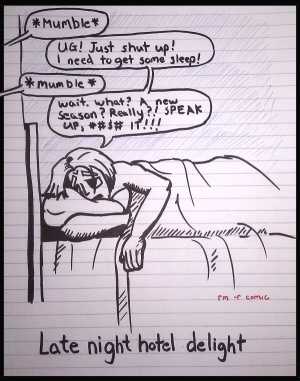 *Mumble*
UG! Just shut up!
I need to get some sleep!
*mumble*
wait. what? A new
season? Really?! SPEAK
UP, *#$# IT!!!
COMIC
Late night hotel delight